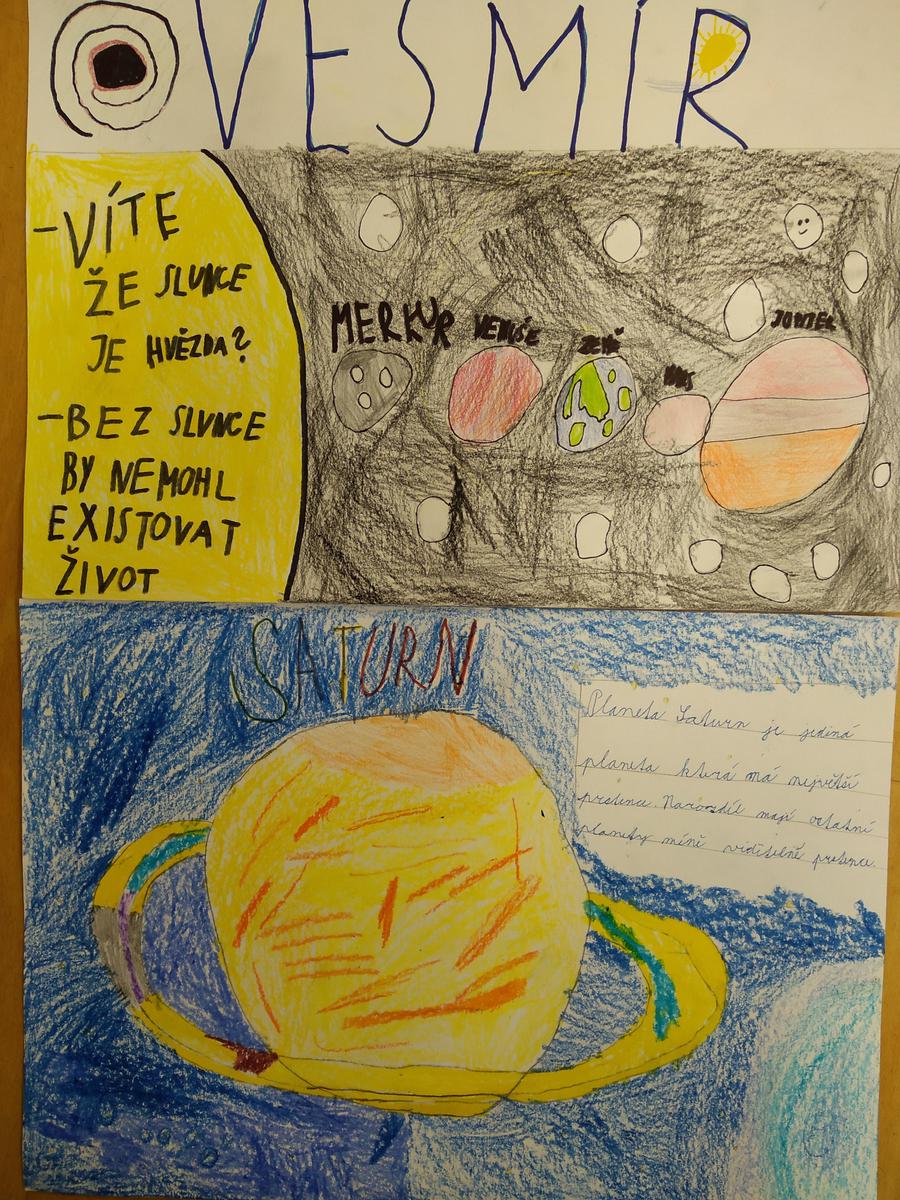 VESMÍR
-VÍTE
ŽE SLUNCE
JE HVĚZDA?
-BEZ SLUNCE
BY NEMOHL
EXISTOVAT
ŽIVOT
MERKUR
VENUŠE
ZEMĚ
MARS
JUPITER
SATURN
Planeta Saturn je jediná
planeta která má největší
prstence. Narozdíl mají ostatní
planety míně viditelné prstence.